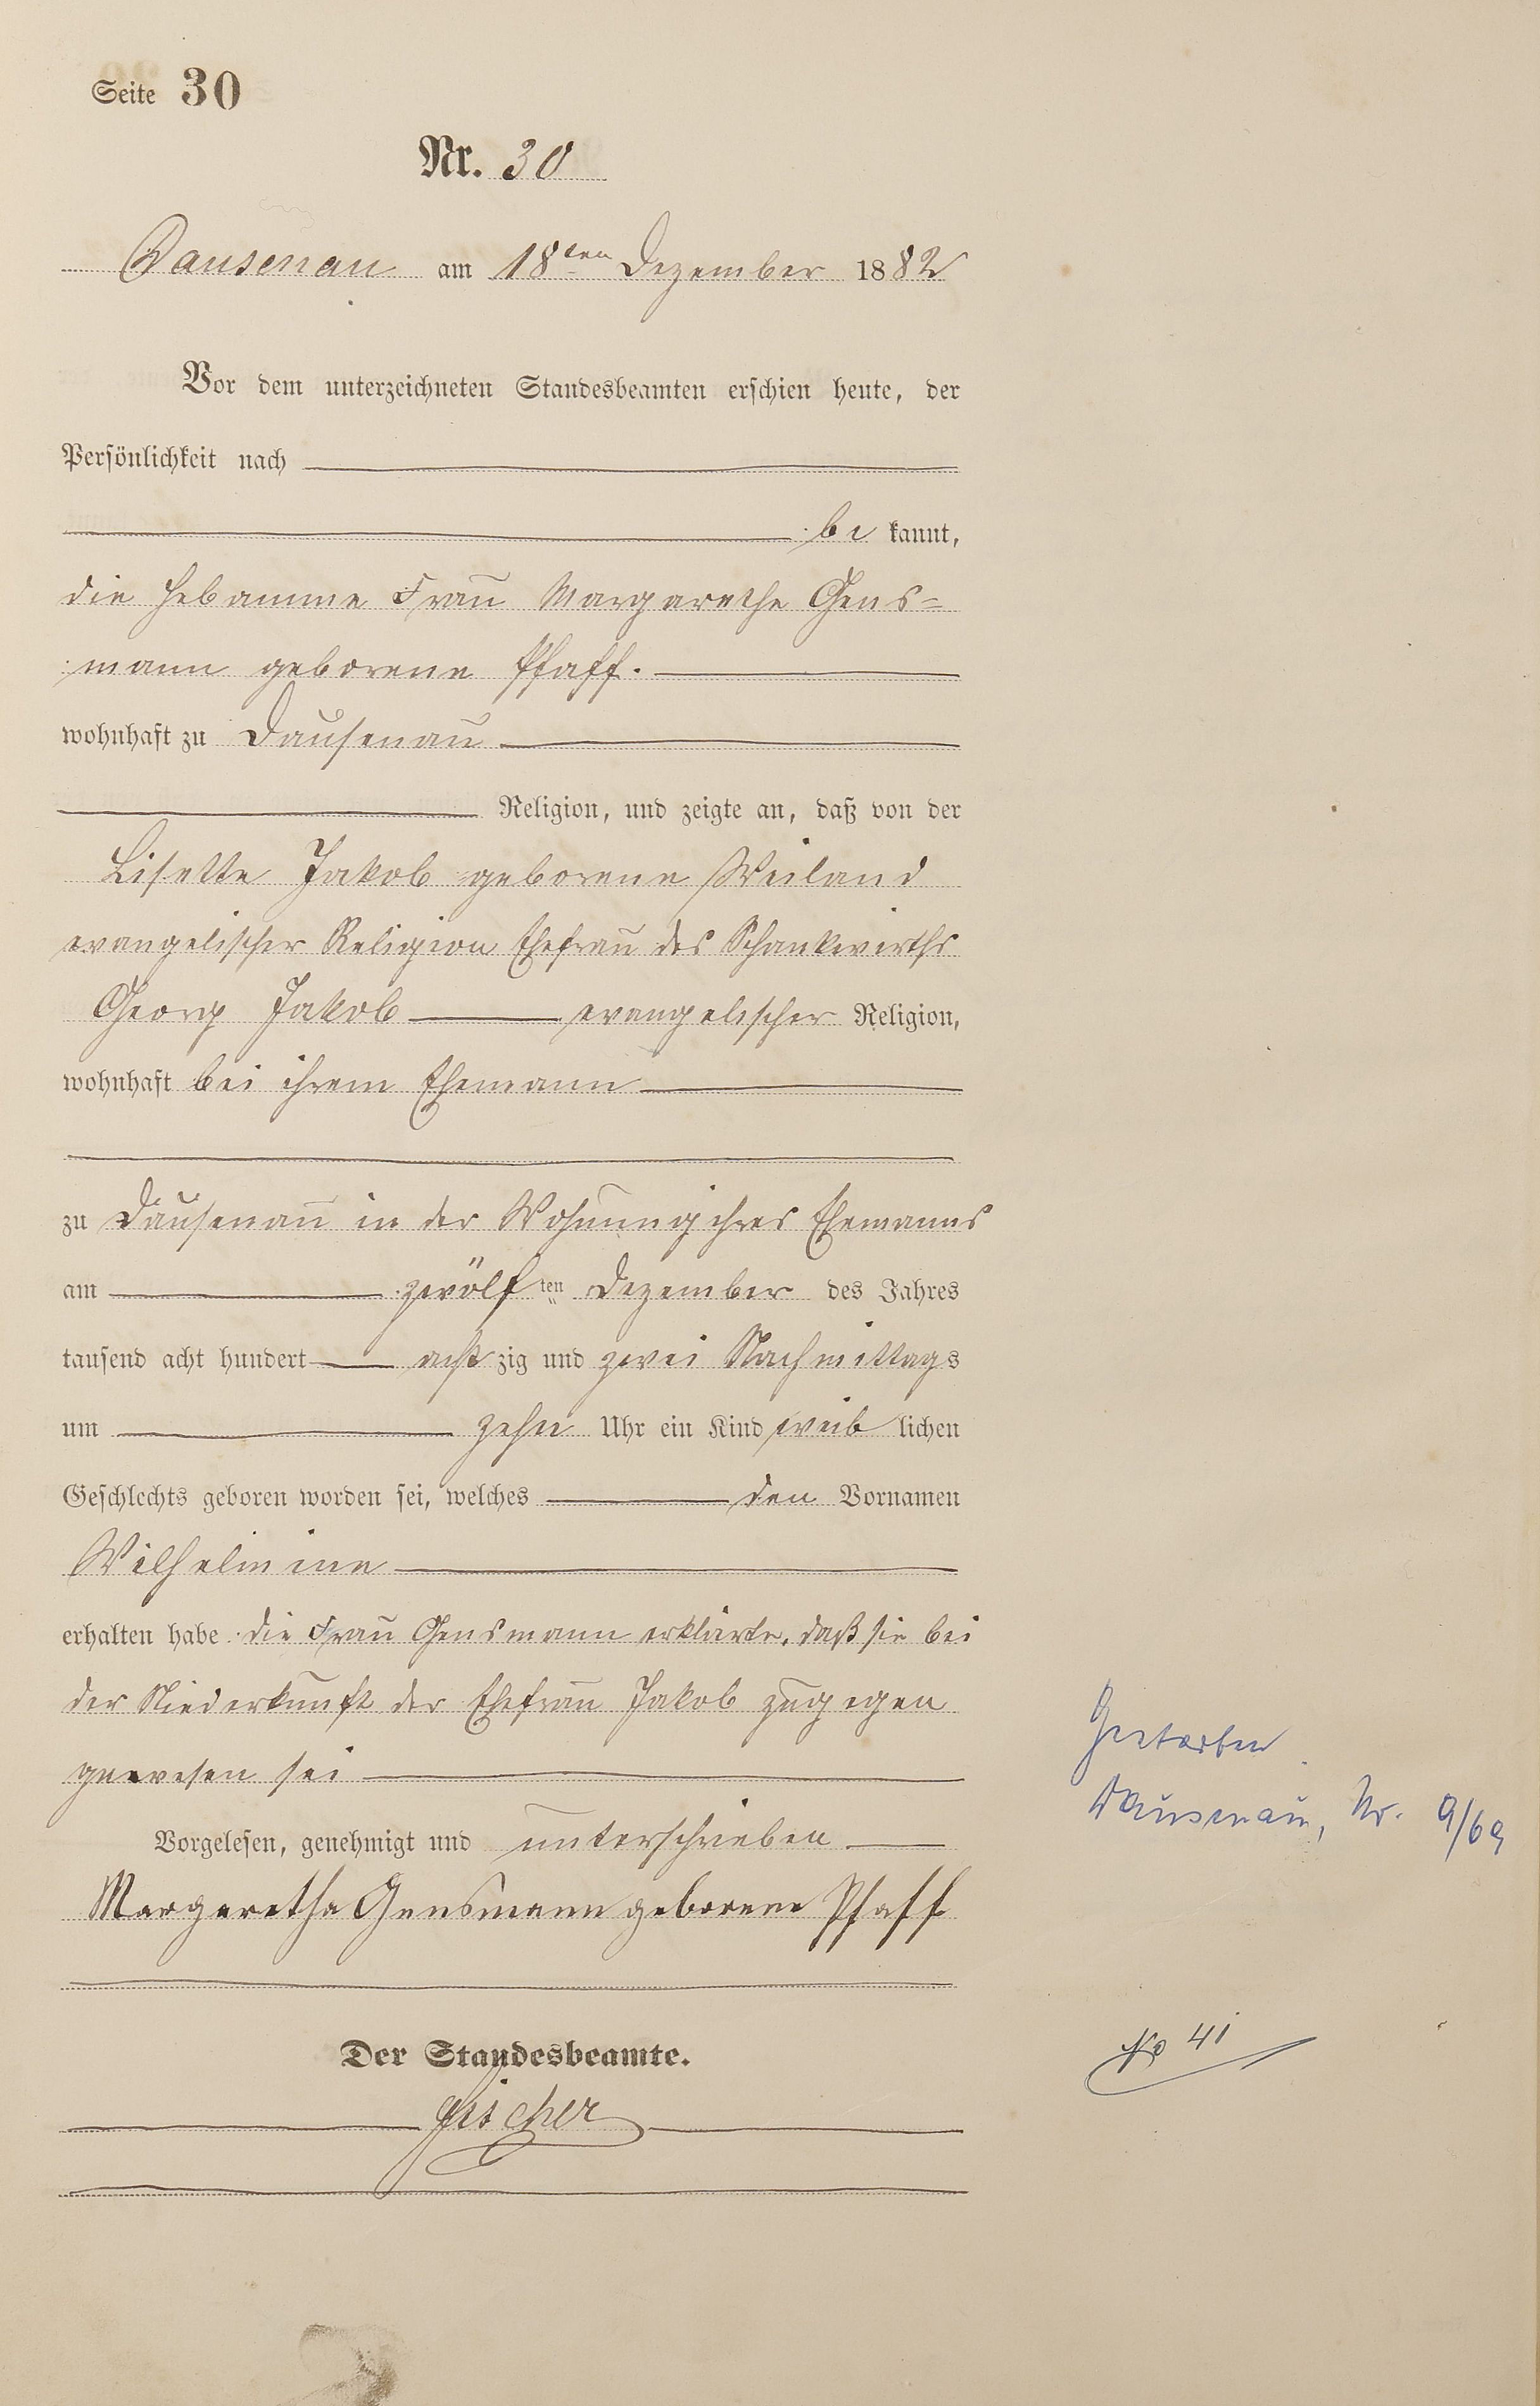 Seite 30
Nr. 30
Dausenau am 18ten Dezember 1882
Vor dem unterzeichneten Standesbeamten erschien heute, der
Persönlichkeit nach
be kannt,
die Hebamme Frau Margarethe Gens=
mann geborene Pfaff.
wohnhaft zu Dausenau
Religion, und zeigte an, daß von der
Lisette Jakob geborene Weiland
evangelischer Religion Ehefrau des Schankwirths
Georg Jakob evangelischer Religion,
wohnhaft bei ihrem Ehemann
zu Dausenau in der Wohnung ihres Ehemanns
am zwölf ten Dezember des Jahres
tausend acht hundert acht zig und zwei Nachmittags
um zehn Uhr ein Kind weib lichen
Geschlechts geboren worden sei, welches den Vornamen
Wilhelmine
erhalten habe. Die Frau Gensmann erklärte, daß sie bei
der Niederkunft der Ehefrau Jakob zugegen
gewesen sei
Vorgelesen, genehmigt und unterschrieben
Margaretha Gensmann geborene Pfaff
Der Standesbeamte.
Fischer
Gestorben
Dausenau, Nr. 9/69
No 41